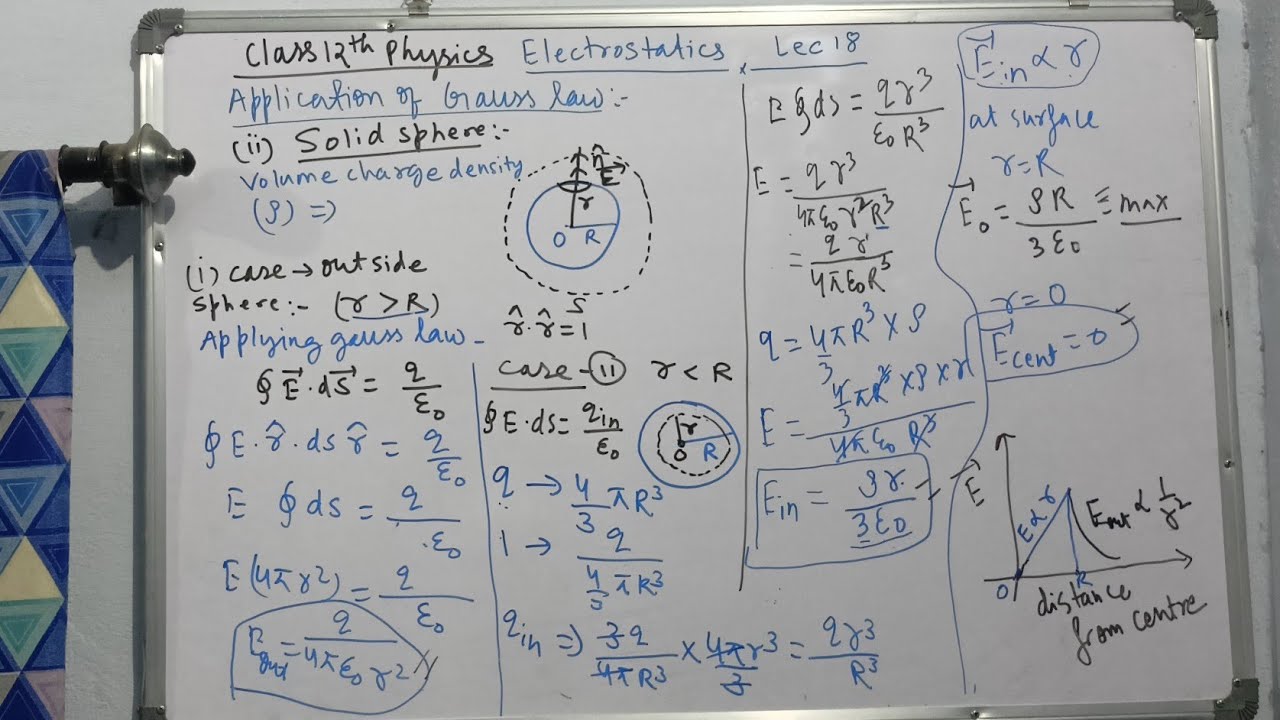 Class 12th Physics Electrostatics Lec 18
Application of Gauss law:-
(ii) Solid sphere:-
Volume charge density
(ρ) ⇒
n̂
E
r
O R
S
(i) case → outside
sphere:- (r > R)
r̂·r̂ = 1
Applying gauss law -
∮E⃗·dS⃗ = q/ε₀
∮E·r̂·ds r̂ = q/ε₀
E ∮ds = q/ε₀
E(4πr²) = q/ε₀
E_out = q/4πε₀r²
case-(ii) r < R
∮E·ds = q_in/ε₀
r
O R
q → 4/3 πR³
1 → q/(4/3 πR³)
q_in ⇒ 3q/4πR³ × 4πr³/3 = qr³/R³
E∮ds = qr³/ε₀R³
E = qr³/4πε₀r²R³
= qr/4πε₀R³
q = 4/3 πR³ × ρ
E = (4/3 πR³ × ρ × r)/(4πε₀R³)
E_in = ρr/3ε₀
E⃗_in ∝ r
at surface
r = R
E⃗₀ = ρR/3ε₀ = max
r = 0
E⃗cent = 0
E⃗
E ∝ r
E_out ∝ 1/r²
O R
distance
from centre